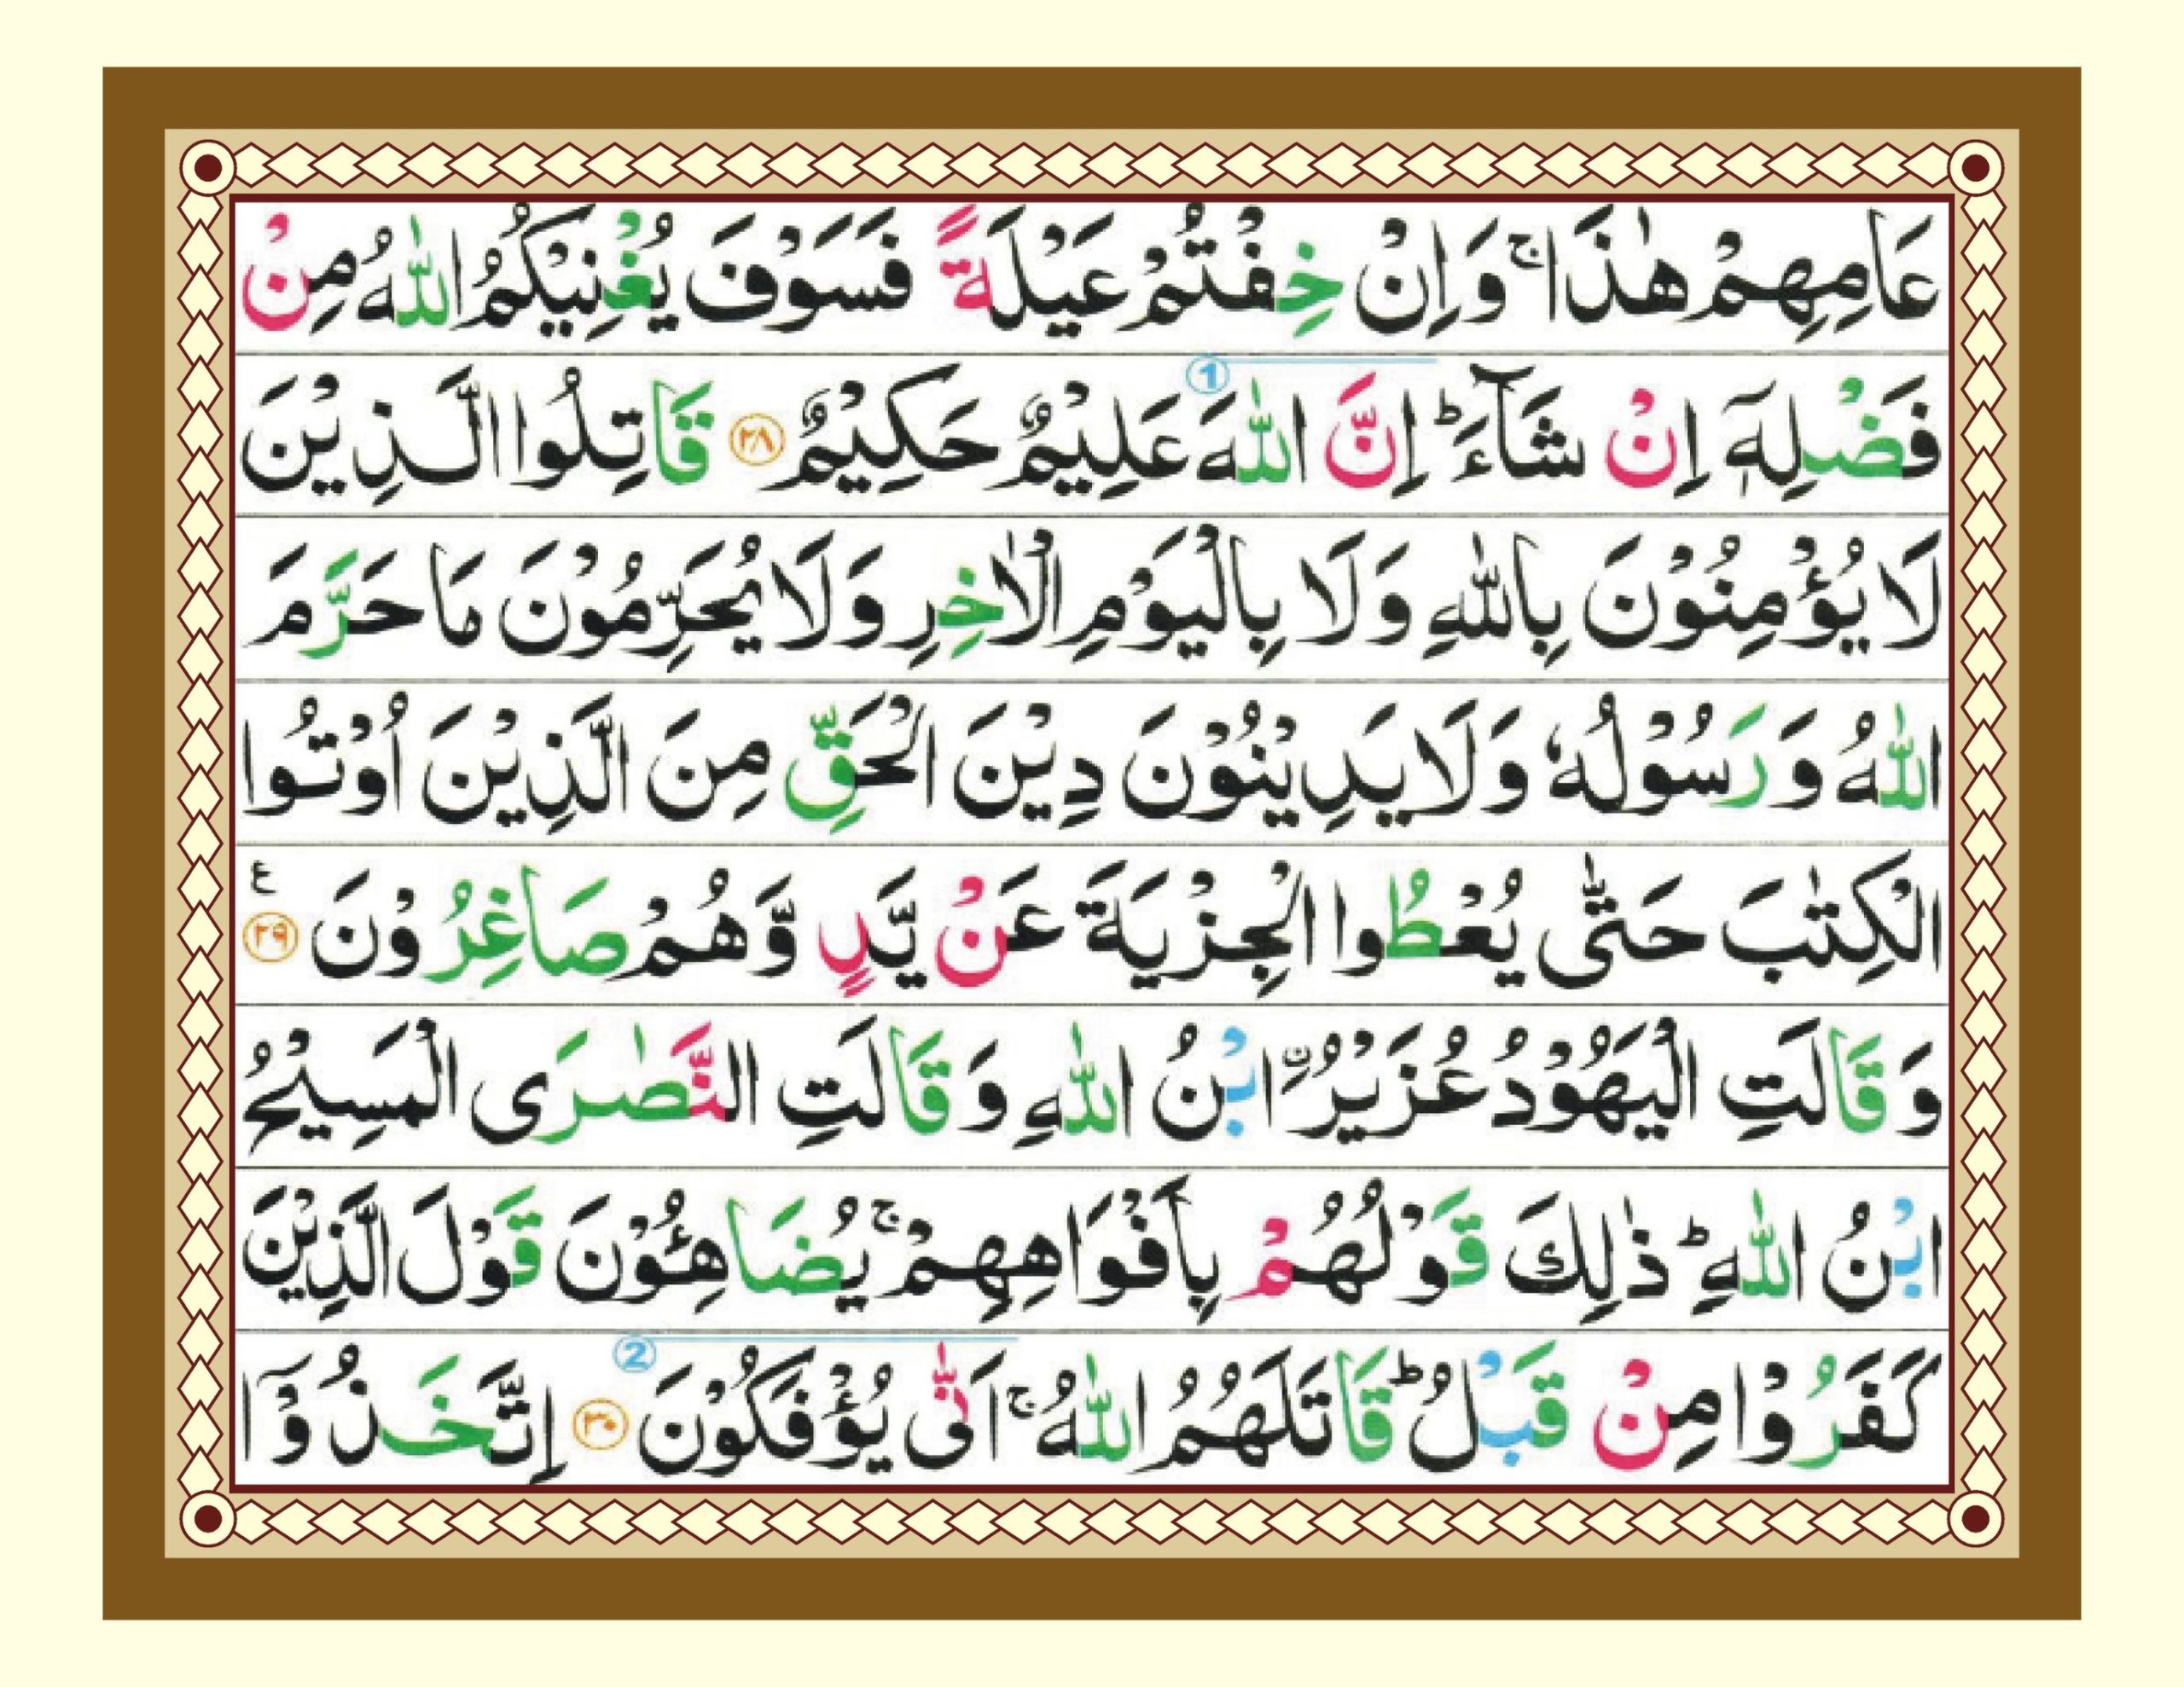 عَامِهِمْ هٰذَا ۚ وَاِنْ خِفْتُمْ عَيْلَةً فَسَوْفَ يُغْنِيْكُمُ اللّٰهُ مِنْ
فَضْلِهٖۤ اِنْ شَآءَ ؕ اِنَّ اللّٰهَ عَلِيْمٌ حَكِيْمٌ ﴿۲۸﴾ قَاتِلُوا الَّذِيْنَ ①
لَا يُؤْمِنُوْنَ بِاللّٰهِ وَلَا بِالْيَوْمِ الْاٰخِرِ وَلَا يُحَرِّمُوْنَ مَا حَرَّمَ
اللّٰهُ وَرَسُوْلُهٗ وَلَا يَدِيْنُوْنَ دِيْنَ الْحَقِّ مِنَ الَّذِيْنَ اُوْتُوا
الْكِتٰبَ حَتّٰى يُعْطُوا الْجِزْيَةَ عَنْ يَّدٍ وَّهُمْ صَاغِرُوْنَ ﴿۲۹﴾ ع
وَقَالَتِ الْيَهُوْدُ عُزَيْرُ ۨ ابْنُ اللّٰهِ وَقَالَتِ النَّصٰرَى الْمَسِيْحُ
ابْنُ اللّٰهِ ؕ ذٰلِكَ قَوْلُهُمْ بِاَفْوَاهِهِمْ ۚ يُضَاهِئُوْنَ قَوْلَ الَّذِيْنَ
كَفَرُوْا مِنْ قَبْلُ ؕ قَاتَلَهُمُ اللّٰهُ ۚ اَنّٰى يُؤْفَكُوْنَ ② ﴿۳۰﴾ اِتَّخَذُوْۤا